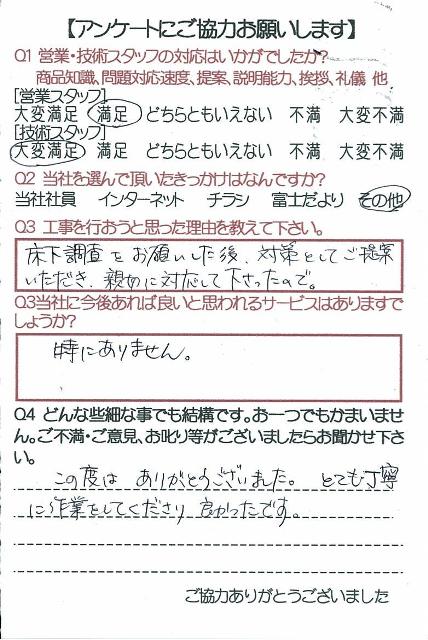 【アンケートにご協力お願いします】
Q1 営業・技術スタッフの対応はいかがでしたか?
商品知識、問題対応速度、提案、説明能力、挨拶、礼儀 他
[営業スタッフ]
大変満足 満足 どちらともいえない 不満 大変不満
[技術スタッフ]
大変満足 満足 どちらともいえない 不満 大変不満
Q2 当社を選んで頂いたきっかけはなんですか?
当社社員 インターネット チラシ 富士だより その他
Q3 工事を行おうと思った理由を教えて下さい。
床下調査をお願いした後、対策としてご提案
いただき、親切に対応して下さったので。
Q3当社に今後あれば良いと思われるサービスはありますで
しょうか?
特にありません。
Q4 どんな些細な事でも結構です。お一つでもかまいませ
ん。ご不満・ご意見、お叱り等がございましたらお聞かせ下さ
い。
この度は ありがとうございました。 とても丁寧
に作業をしてくださり 良かったです。
ご協力ありがとうございました